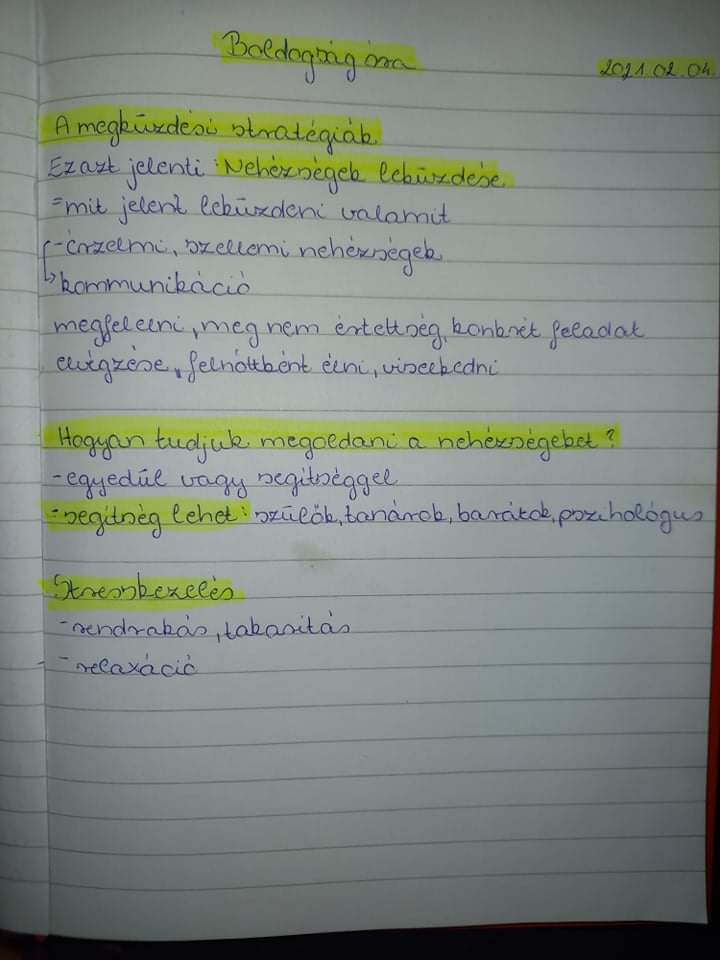 Boldogság óra
2021.02.04.
A megküzdési stratégiák
Ez azt jelenti: Nehézségek leküzdése
=mit jelent leküzdeni valamit
-érzelmi, szellemi nehézségek
kommunikáció
megfelelni, meg nem értettség, konkrét feladat
elvégzése, felnőttként élni, viselkedni
Hogyan tudjuk megoldani a nehézségeket?
-egyedül vagy segítséggel
-segítség lehet: szülők, tanárok, barátok, pszichológus
Stresszkezelés
-rendrakás, takarítás
-relaxáció